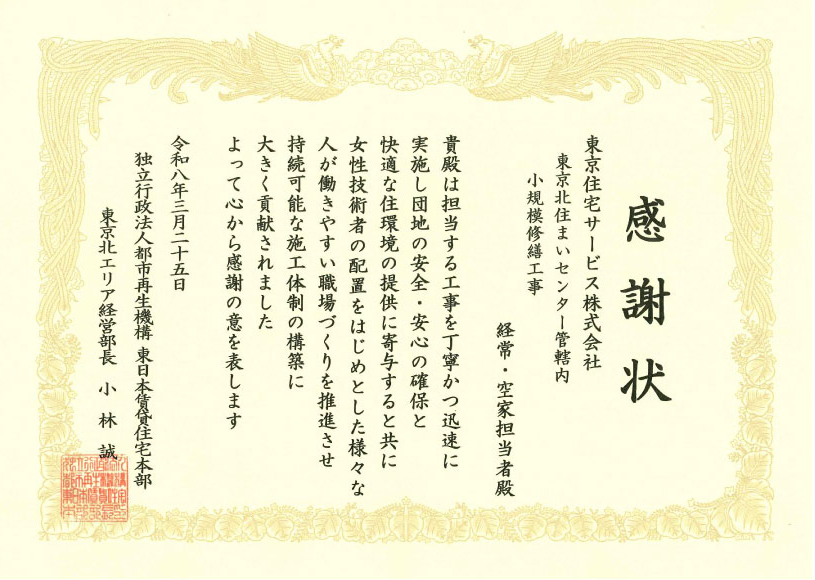 感謝状
東京住宅サービス株式会社
東京北住まいセンター管轄内
小規模修繕工事
経常・空家担当者殿
貴殿は担当する工事を丁寧かつ迅速に
実施し団地の安全・安心の確保と
快適な住環境の提供に寄与すると共に
女性技術者の配置をはじめとした様々な
人が働きやすい職場づくりを推進させ
持続可能な施工体制の構築に
大きく貢献されました
よって心から感謝の意を表します
令和八年三月二十五日
独立行政法人都市再生機構 東日本賃貸住宅本部
東京北エリア経営部長 小林 誠